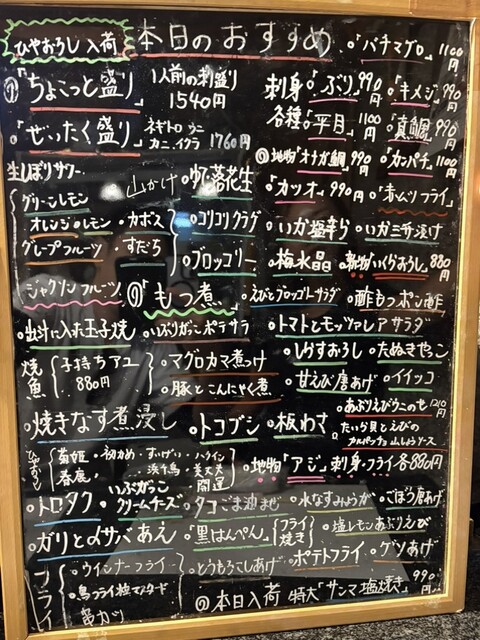 ひやおろし入荷
本日のおすすめ
。「バチマグロ」1100円
「ちょこっと盛り」1人前の刺盛り 1540円
「ぜいたく盛り」ネギトロ ウニ カニ、イクラ 1760円
刺身各種
「ぶり」990円
。「キメジ」990円
。「平目」1100円
「真鯛」990円
地物「オナガ鯛」990円
。「カンパチ」1100円
。「カツオ」990円
。「赤ムツフライ」
生しぼりサワー
グリーンレモン
オレンジ。レモン
・カボス
グレープフルーツ
・すだち
ジャクソンフルーツ
山かけ
。ゆで落花生
。コリコリクラゲ
。ブロッコリー
。いか塩辛
。いか三升漬け
。梅水晶
いくらおろし」880円
「もつ煮」
。えびとブロッコリーサラダ
。酢もつポン酢
。出汁に入れた玉子焼
。いぶりがっこポテサラ
。トマトとモッツァレラサラダ
焼魚
子持ちアユ 880円
。マグロカマ煮つけ
。豚とこんにゃく煮
。しらすおろし
。たぬきやっこ
。甘えび唐あげ
。イイッコ
。焼きなす煮浸し
。トコブシ
。板わさ
。あぶりえびウニのせ 1210円
。たいら貝とえびのカルパッチョ山しょうソース
ひやおろし
菊姫
・初かめ
春鹿
浜千鳥
・美丈夫
開運
。地物「アジ」刺身・フライ各880円
。トロタク
。いぶりがっこクリームチーズ
。タコごま油まぜ
。水なすみょうが
。ごぼう唐あげ
。ガリとメサバあえ
。「黒はんぺん」
フライ
焼き
。塩レモンあぶりえび
フライ
。ウインナーフライ
。鳥フライ柚マスタード
。串カツ
。とうもろこしあげ
。ポテトフライ
。ゲソあげ
本日入荷 特大「サンマ塩焼き」990円